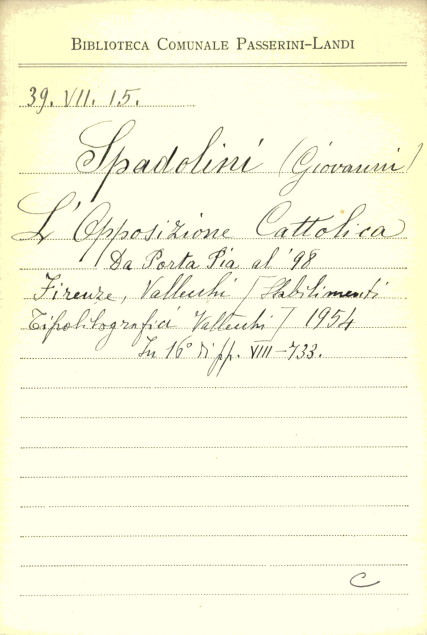 BIBLIOTECA COMUNALE PASSERINI-LANDI
39. VII. 15.
Spadolini (Giovanni)
L'Opposizione Cattolica
Da Porta Pia al '98
Firenze, Vallecchi [Stabilimenti
Tipolitografici Vallecchi] 1954
In 16° di pp. VIII-733.
C